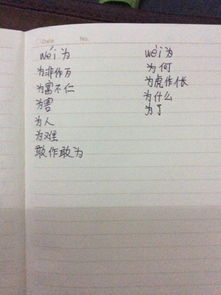 Date No.
wéi 为
为非作歹
为富不仁
为害
为人
为难
敢作敢为
wèi 为
为何
为虎作伥
为什么
为了